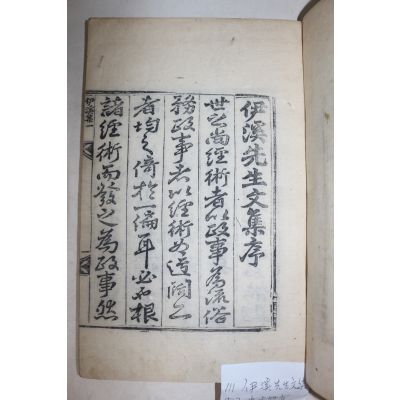 伊溪先生文集序
世之尚經術者以政事為流俗
務政事者以經術為迂闊之
者均之倚於一偏耳必也根
諸經術而發之為政事然
伊溪集一
111 伊溪先生文集